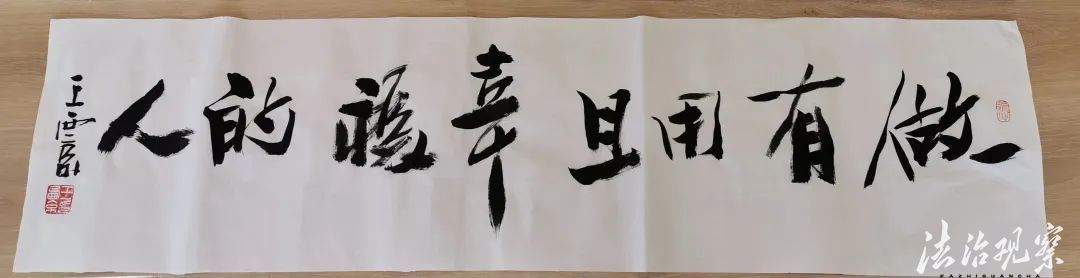 做有用且幸福的人
法治观察
FAZHIGUANCHA